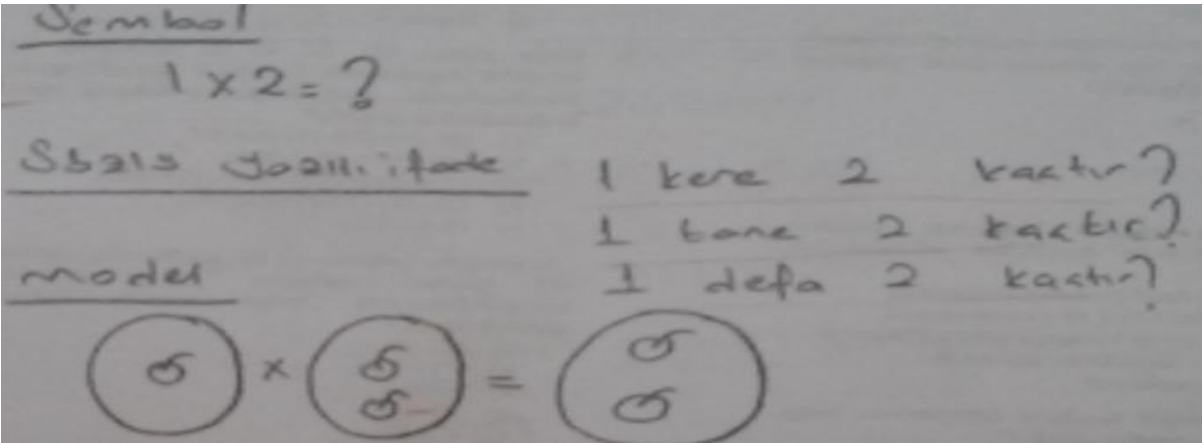 Sembol
1 x 2 = ?
Sözlü yazılı ifade
1 kere 2 kaçtır?
1 tane 2 kaçtır?
1 defa 2 kaçtır?
model
x =